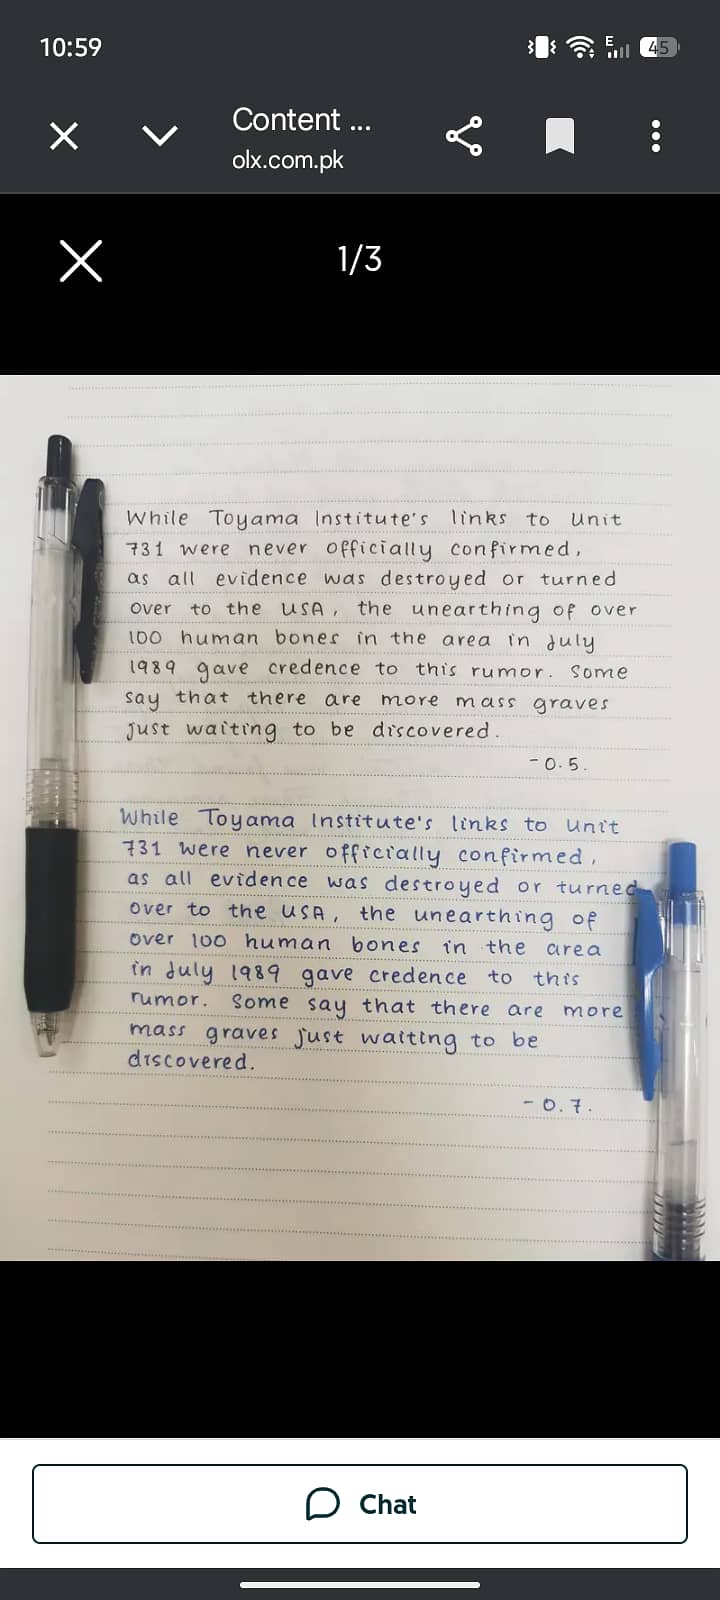 10:59
E
45
Content ...
olx.com.pk
1/3
While Toyama Institute's links to Unit
731 were never officially confirmed,
as all evidence was destroyed or turned
over to the USA, the unearthing of over
100 human bones in the area in July
1989 gave credence to this rumor. Some
say that there are more mass graves
just waiting to be discovered.
- 0.5.
While Toyama Institute's links to Unit
731 were never officially confirmed,
as all evidence was destroyed or turned
over to the USA, the unearthing of
over 100 human bones in the area
in July 1989 gave credence to this
rumor. Some say that there are more
mass graves just waiting to be
discovered.
- 0.7.
Chat